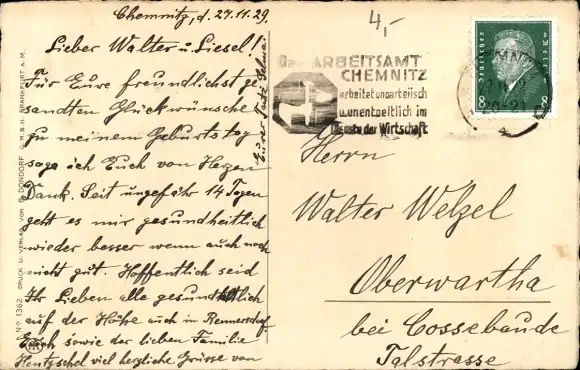 Chemnitz, d. 27.11.29.
4,-
Lieber Walter u. Liesel!
Für Eure freundlichst ge-
sandten Glückwünsche
zu meinem Geburtstag
sage ich Euch von Herzen
Dank. Seit ungefähr 14 Tagen
geht es mir gesundheitlich
wieder besser wenn auch noch
nicht gut. Hoffentlich seid
Ihr Lieben alle gesundheitlich
auf der Höhe auch in Rennersdorf.
Euch sowie der lieben Familie
Hentzschel viel herzliche Grüsse von
Eurer
Das ARBEITSAMT
CHEMNITZ
arbeitet unparteiisch
u. unentgeltlich im
Dienste der Wirtschaft
Deutsches Reich
8 8
CHEMNITZ
20-21
Herrn
Walter Welzel
Oberwartha
bei Cossebaude
Talstrasse
No 1362 DRUCK U. VERLAG VON B. DONDORF G.M.B.H. FRANKFURT A. M.